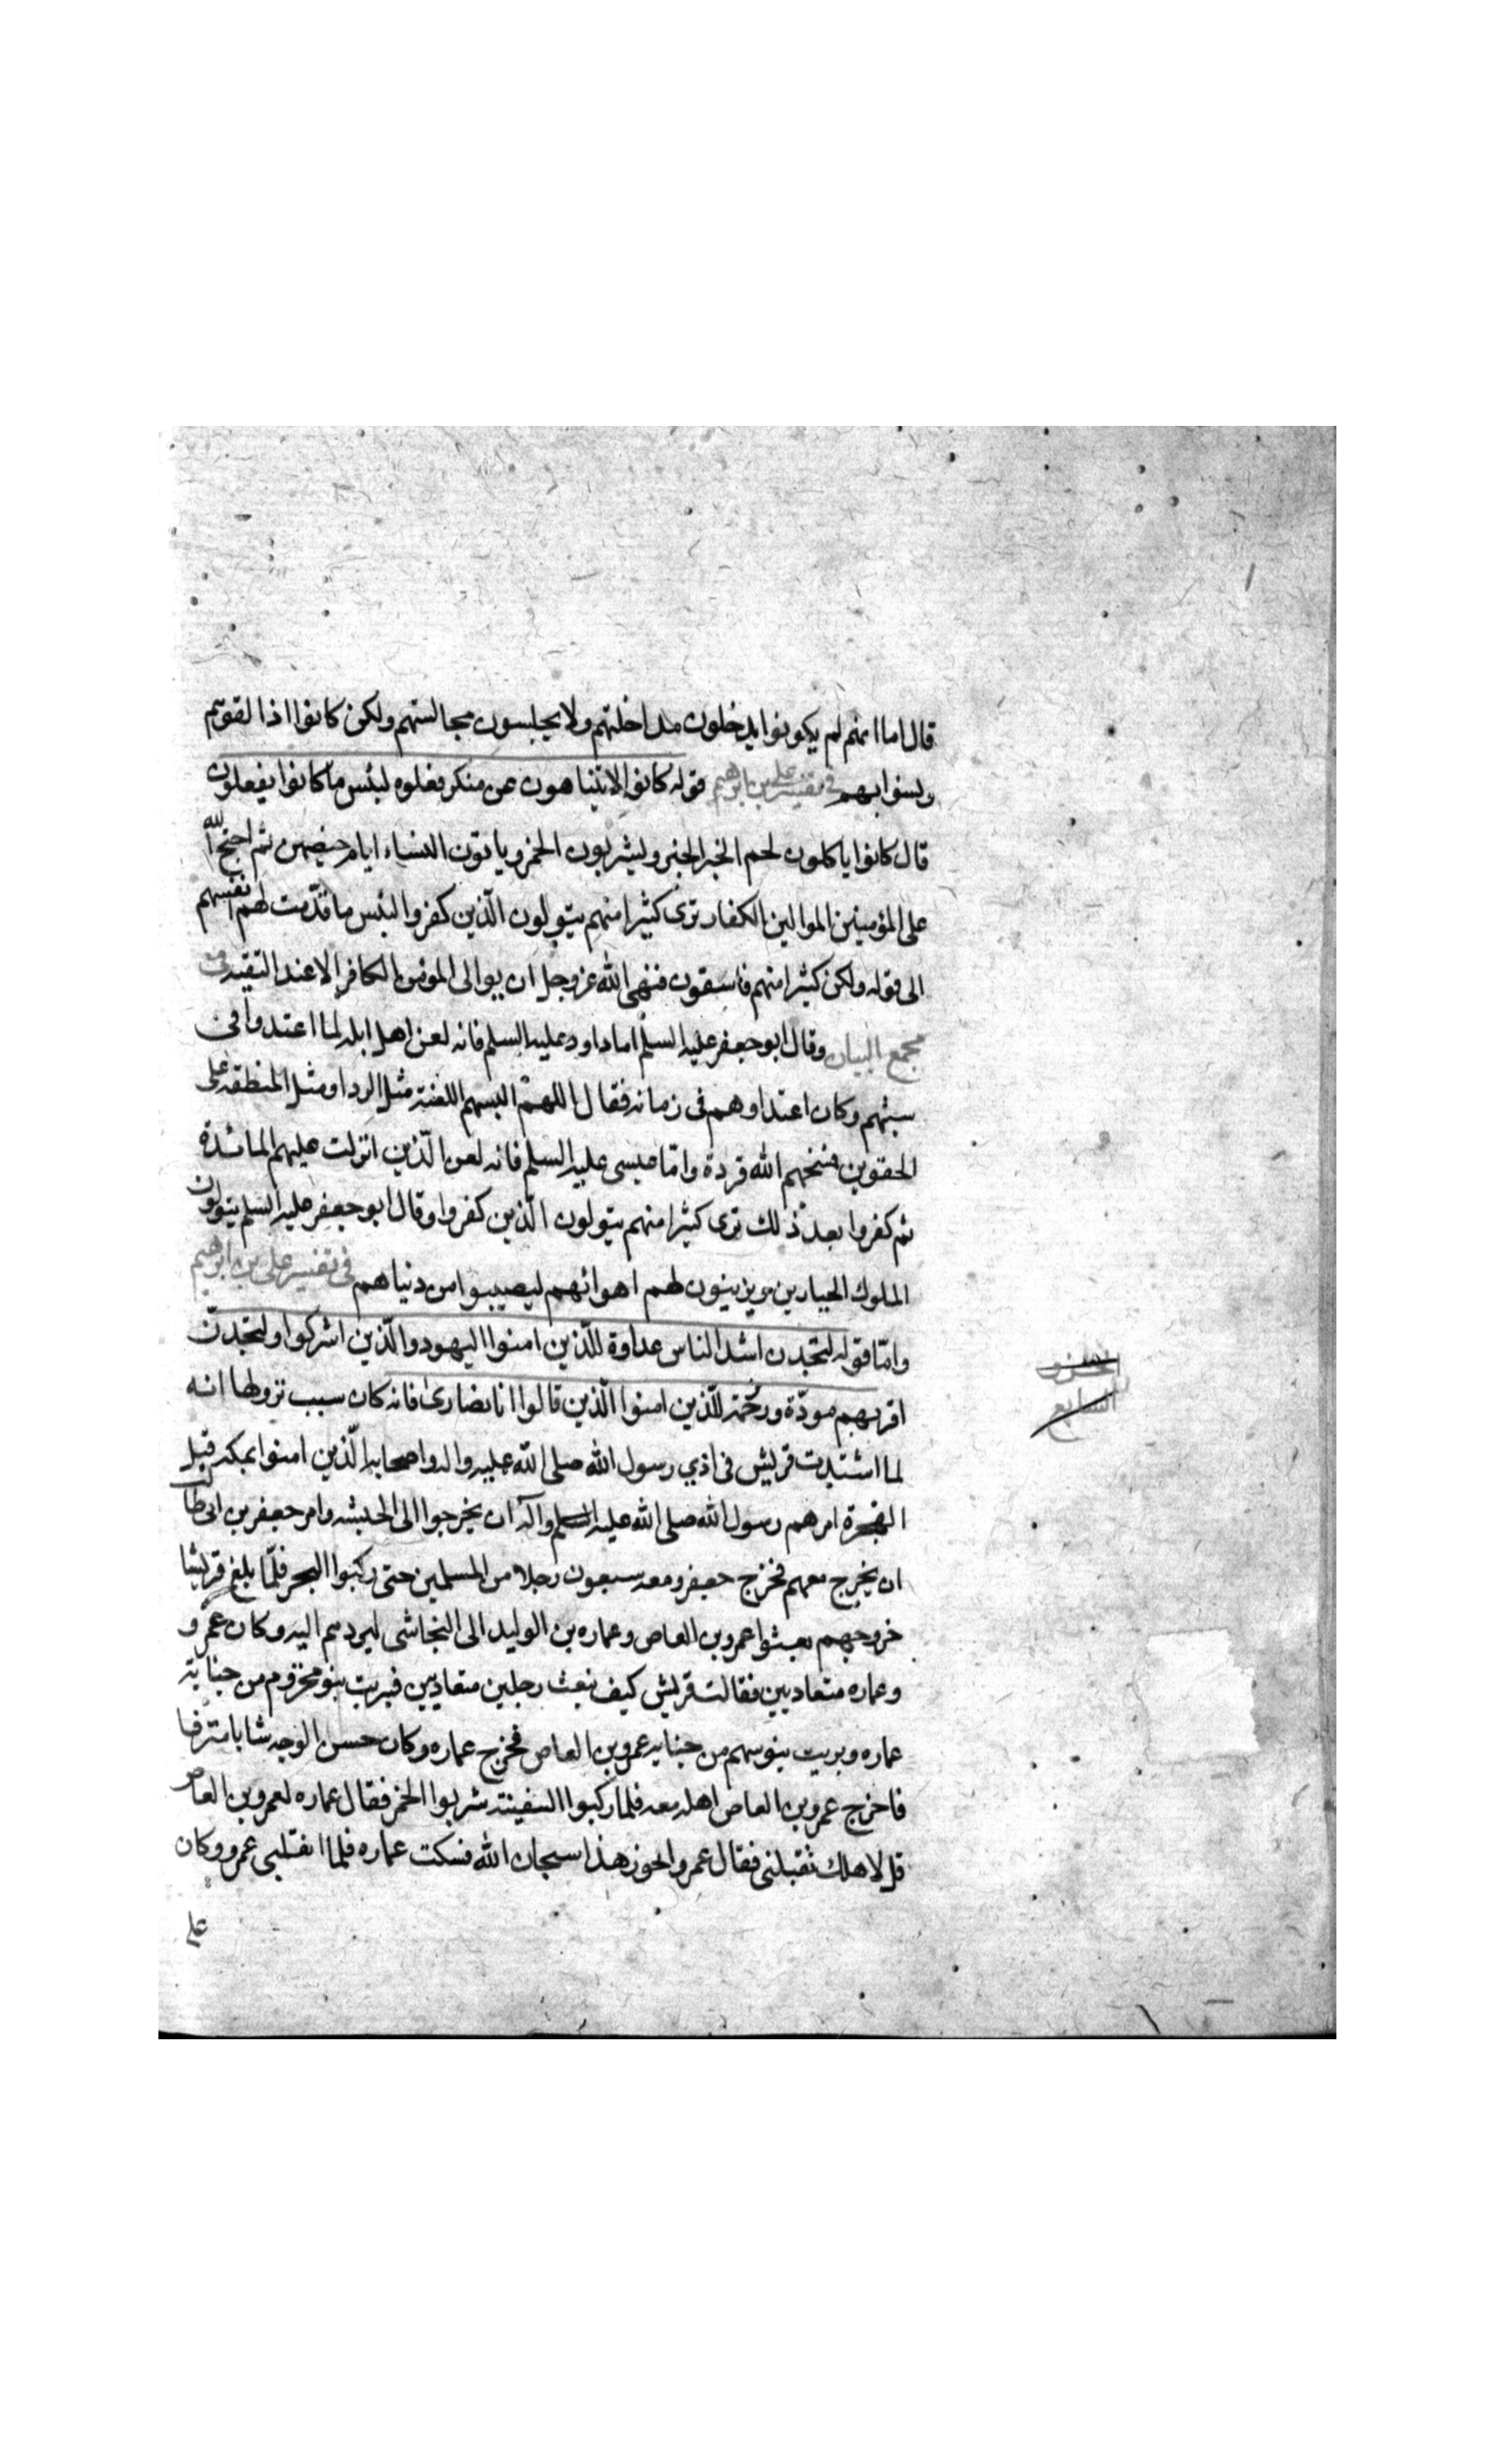 قال اما انهم لم يكونوا يدخلون مداخلهم ولا يجلسون مجالسهم ولكن كانوا اذا لقوهم
وانسوا بهم في تفسير علي بن ابرهيم قوله كانوا لا يتناهون عن منكر فعلوه لبئس ما كانوا يفعلون
قال كانوا ياكلون لحم الخنزير ويشربون الخمر وياتون النساء ايام حيضهن ثم احتج الله
على المؤمنين الموالين الكفار ترى كثيرا منهم يتولون الّذين كفروا لبئس ما قدّمت لهم انفسهم
الى قوله ولكن كثيرا منهم فاسقون فنهى الله عز وجل ان يوالى المومن الكافر الا عند التقيه في
مجمع البيان وقال ابو جعفر عليه السلم اما داود عليه السلم فانه لعن اهل ابله لما اعتدوا في
سبتهم وكان اعتداوهم في زمانه فقال اللهمّ البسهم اللعنة مثل الردا ومثل المنطقه على
الحقوين فمسخهم الله قردة وامّا عيسى عليه السلم فانه لعن الّذين انزلت عليهم المائدة
ثم كفروا بعد ذلك ترى كثيرا منهم يتولون الّذين كفروا وقال ابو جعفر عليه السلم يتولون
الملوك الجبارين ويزينون لهم اهوائهم ليصيبوا من دنياهم في تفسير علي بن ابرهيم
وامّا قوله لتجدن اشد الناس عداوة للّذين امنوا اليهود والّذين اشركوا ولتجدنّ
اقربهم مودّة ورحمة للّذين امنوا الّذين قالوا انا نصارى فانه كان سبب نزولها انه
لما اشتدت قريش في اذي رسول الله صلى الله عليه واله واصحابه الّذين امنوا بمكه قبل
الهجرة امرهم رسول الله صلى الله عليه السلم وآله ان يخرجوا الى الحبشه وامر جعفر بن ابى طالب
ان يخرج معهم فخرج جعفر ومعه سبعون رجلا من المسلمين حتى ركبوا البحر فلمّا بلغ قريشا
خروجهم بعثوا عمرو بن العاص وعماره بن الوليد الى النجاشى ليردهم اليه وكان عمرو
وعماره متعاديين فقالت قريش كيف نبعث رجلين متعاديين فبريت بنو مخزوم من جناية
عماره وبريت بنو سهم من جنايه عمرو بن العاص فخرج عماره وكان حسن الوجه شابا مترفا
فاخرج عمرو بن العاص اهله معه فلما ركبوا السفينه شربوا الخمر فقال عماره لعمرو بن العاص
قل لاهلك تقبلنى فقال عمرو الجوز هذا سبحان الله فسكت عماره فلما انتشى عمرو وكان
على
الجزو
السابع